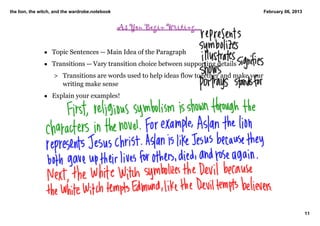 the lion, the witch, and the wardrobe.notebook
February 06, 2013
As You Begin Writing...
represents
symbolizes
illustrates signifies
shows
portrays stands for
• Topic Sentences — Main Idea of the Paragraph
• Transitions — Vary transition choice between supporting details
> Transitions are words used to help ideas flow together and make your
writing make sense
• Explain your examples!
First, religious symbolism is shown through the
characters in the novel. For example, Aslan the lion
represents Jesus Christ. Aslan is like Jesus because they
both gave up their lives for others, died, and rose again.
Next, the White Witch symbolizes the Devil because
the White Witch tempts Edmund, like the Devil tempts believers
11